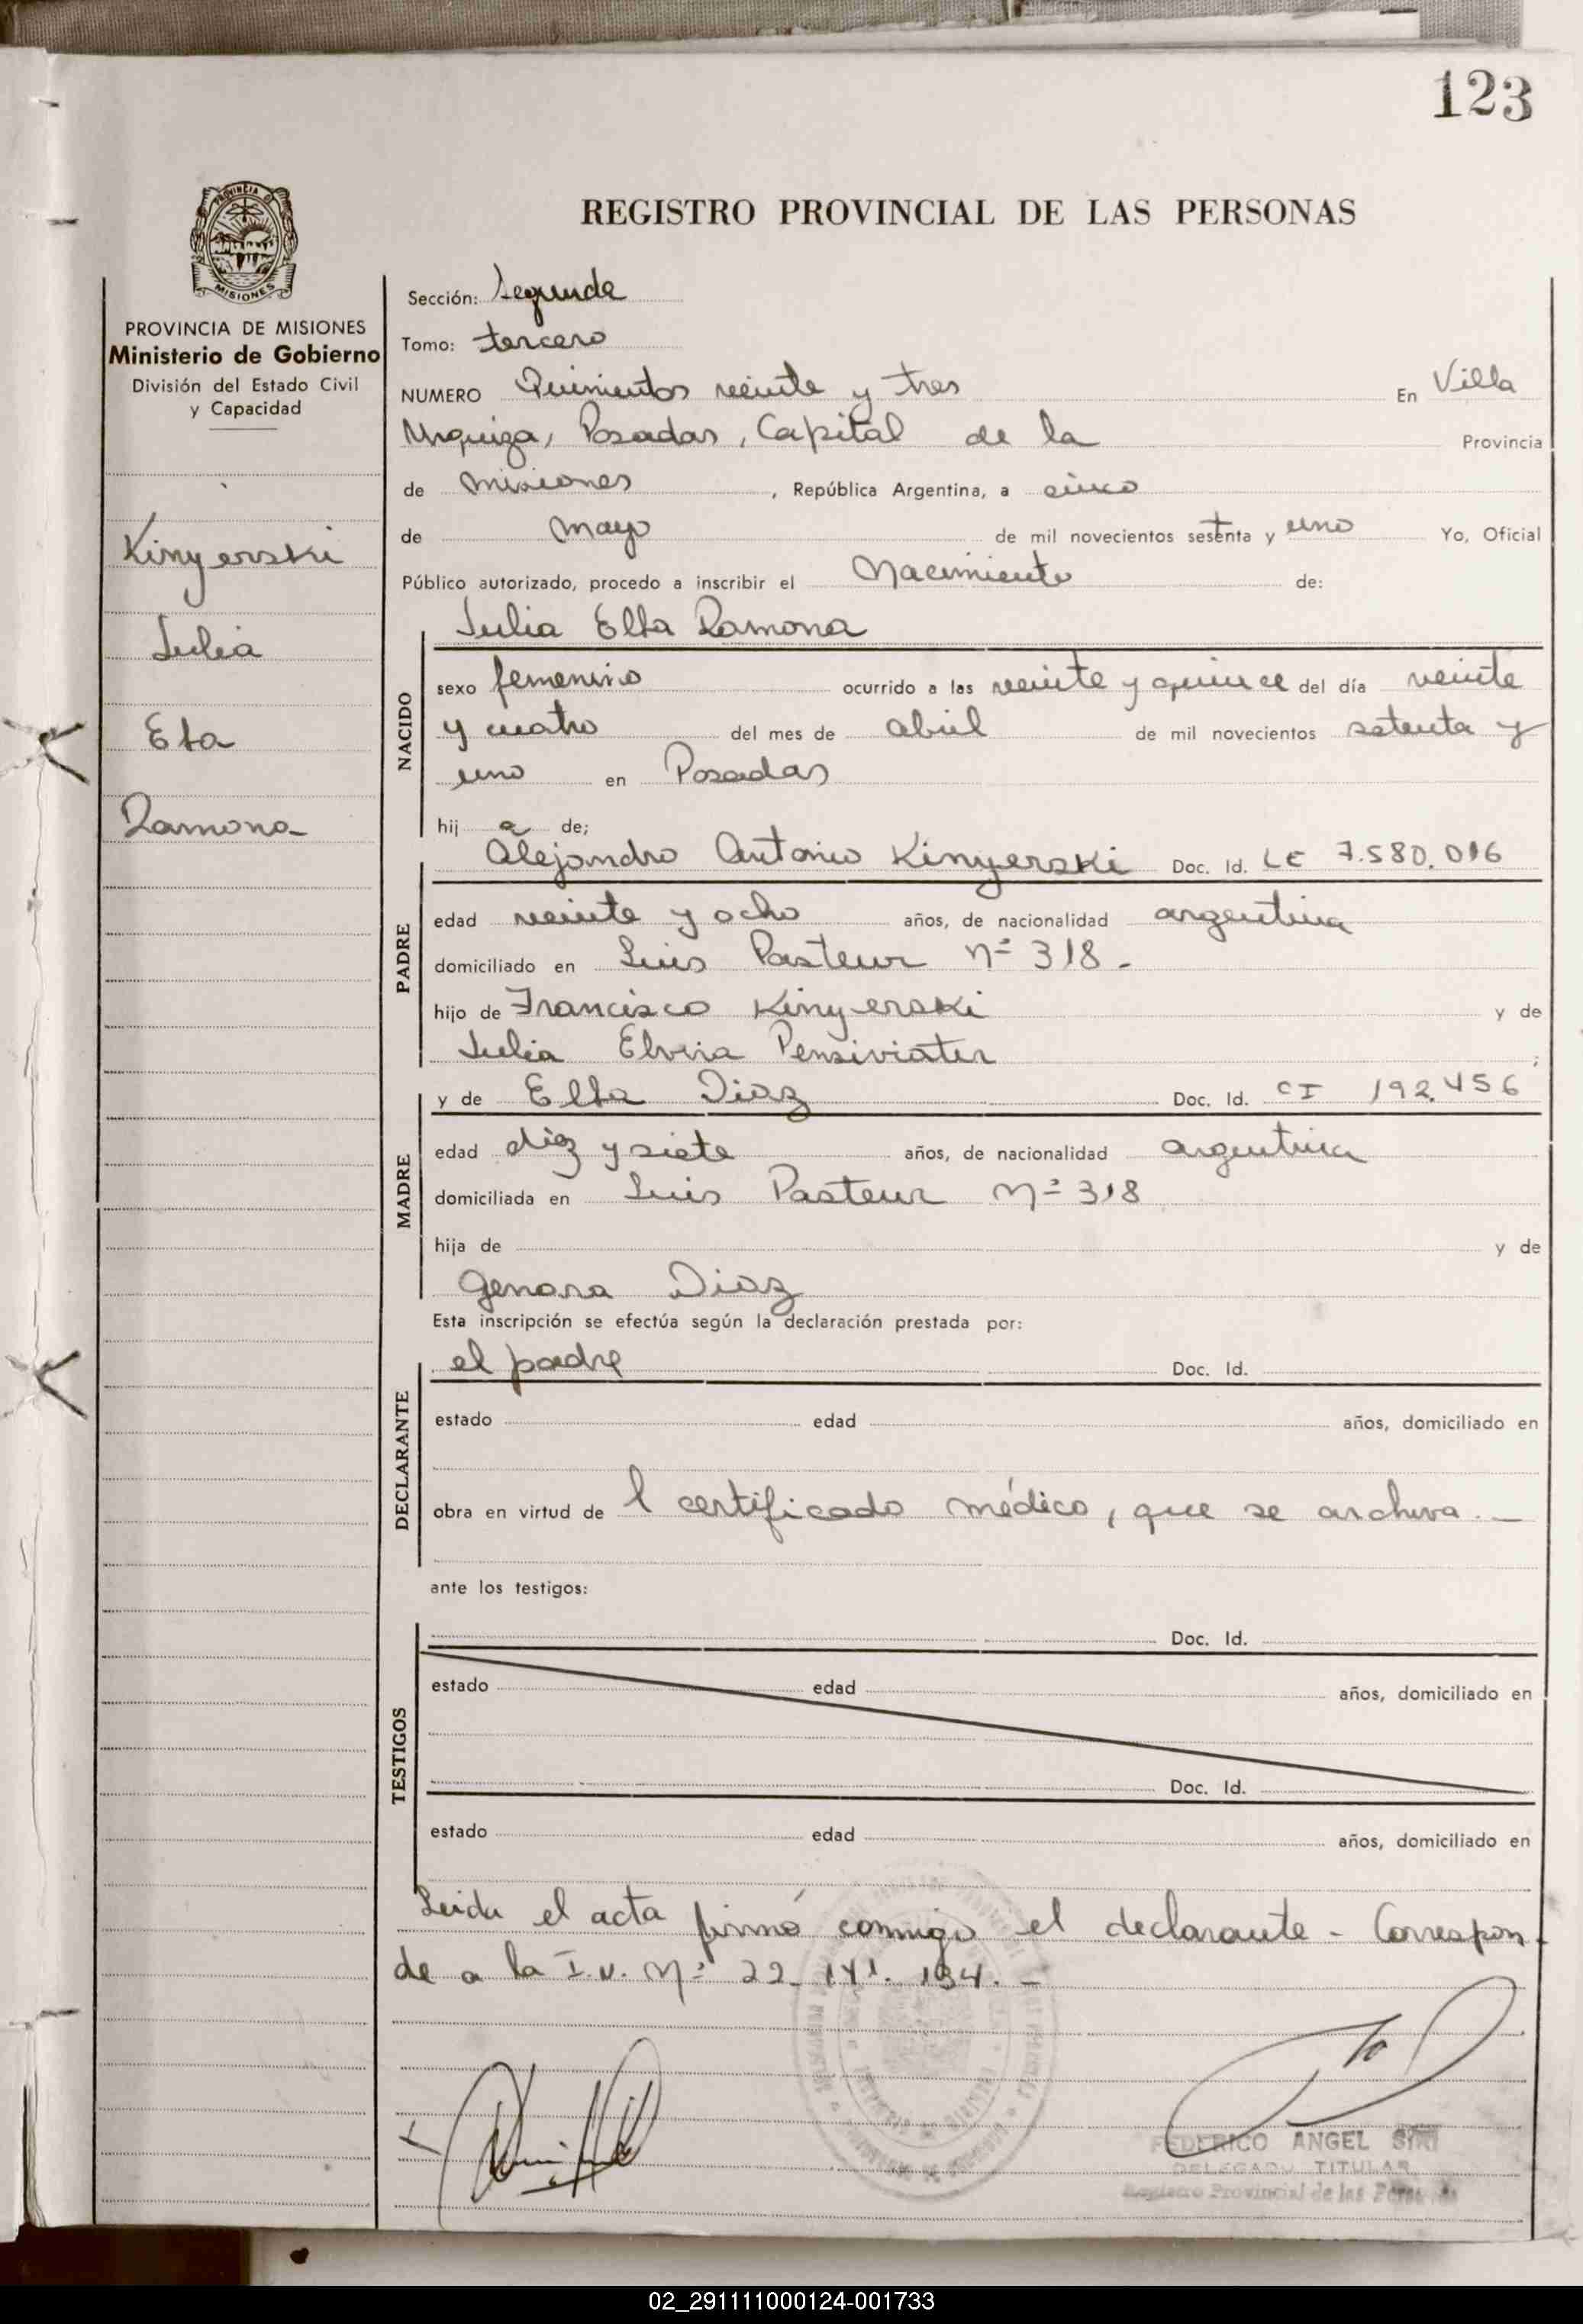 123
REGISTRO PROVINCIAL DE LAS PERSONAS
PROVINCIA DE
MISIONES
PROVINCIA DE MISIONES
Ministerio de Gobierno
División del Estado Civil
y Capacidad
Kinyerski
Julia
Elta
Ramona
Sección: Segunda
Tomo: tercero
NUMERO Quinientos veinte y tres En Villa
Urquiza, Posadas, Capital de la Provincia
de Misiones, República Argentina, a cinco
de mayo de mil novecientos sesenta y uno Yo, Oficial
Público autorizado, procedo a inscribir el Nacimiento de:
Julia Elta Ramona
NACIDO
sexo femenino ocurrido a las veinte y quince del día veinte
y cuatro del mes de abril de mil novecientos setenta y
uno en Posadas
hij a de;
Alejandro Antonio Kinyerski Doc. Id. LE 7.580.016
PADRE
edad veinte y ocho años, de nacionalidad argentina
domiciliado en Luis Pasteur Nº 318 -
hijo de Francisco Kinyerski y de
Julia Elvira ;
y de Elta Diaz Doc. Id. CI 192.456
MADRE
edad diez y siete años, de nacionalidad argentina
domiciliada en Luis Pasteur Nº 318
hija de y de
Genara Diaz
Esta inscripción se efectúa según la declaración prestada por:
el padre Doc. Id.
DECLARANTE
estado edad años, domiciliado en
obra en virtud de l certificado médico, que se archiva. -
ante los testigos:
Doc. Id.
TESTIGOS
estado edad años, domiciliado en
Doc. Id.
estado edad años, domiciliado en
Leída el acta firmó conmigo el declarante - Correspon
de a la I.N. Nº 22.141.194. -
FEDERICO ANGEL
DELEGADO TITULAR
Registro Provincial de las Personas
02_291111000124-001733